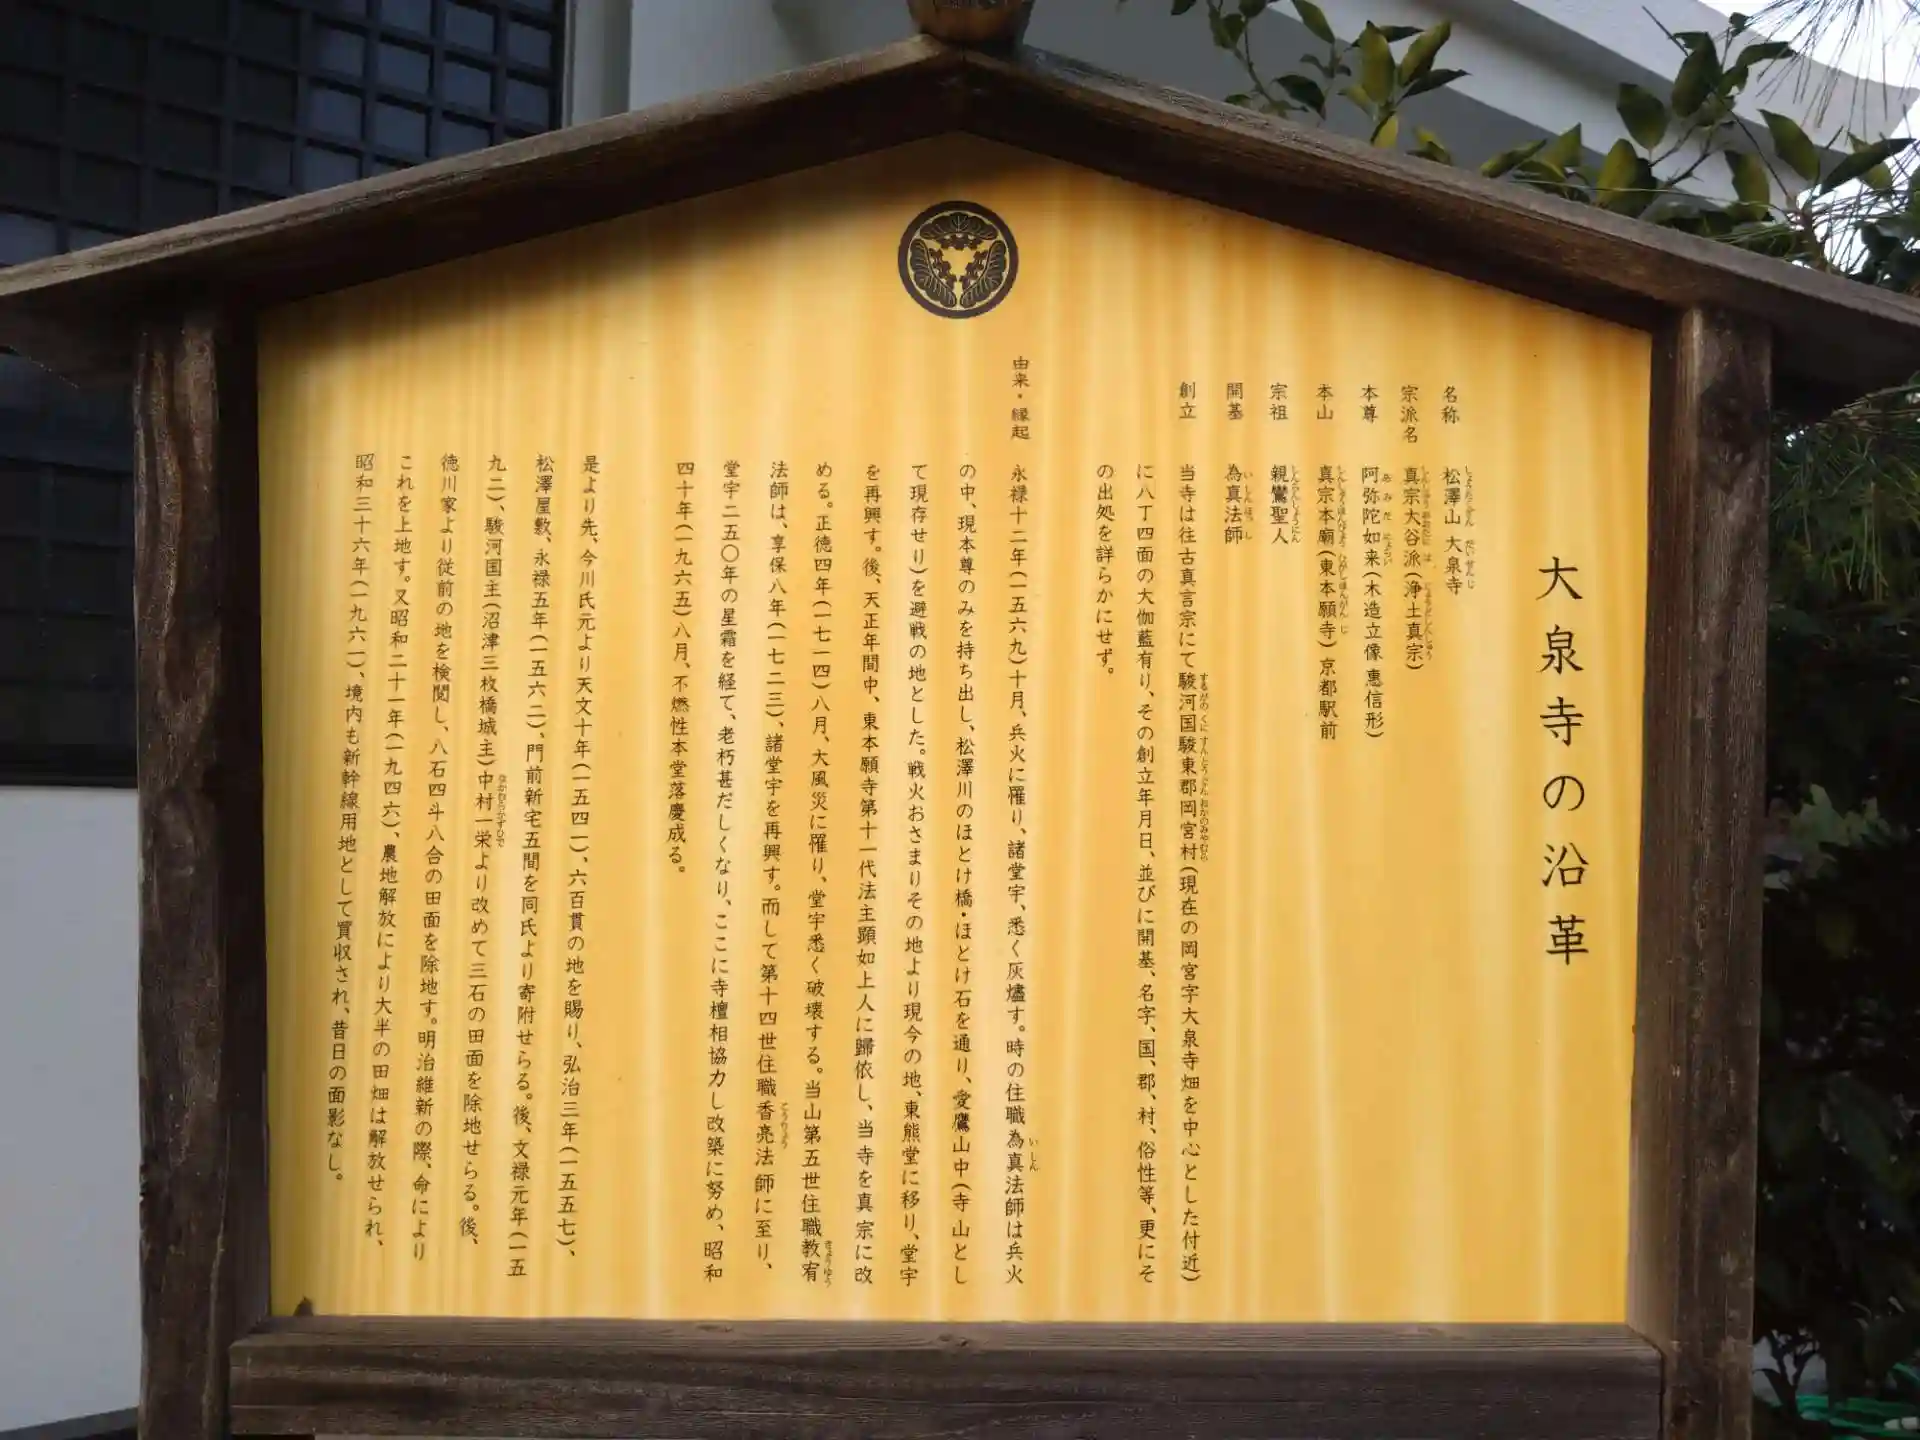 大泉寺の沿革
名称　松澤山 大泉寺
宗派名　真宗大谷派(浄土真宗)
本尊　阿弥陀如来(木造立像 惠信形)
本山　真宗本廟(東本願寺)京都駅前
宗祖　親鸞聖人
開基　為真法師
創立　当寺は往古真言宗にて駿河国駿東郡岡宮村(現在の岡宮字大泉寺畑を中心とした付近)
に八丁四面の大伽藍有り、その創立年月日、並びに開基、名字、国、郡、村、俗性等、更にそ
の出処を詳らかにせず。
由来・縁起　永禄十二年(一五六九)十月、兵火に罹り、諸堂宇、悉く灰燼す。時の住職為真法師は兵火
の中、現本尊のみを持ち出し、松澤川のほとけ橋・ほとけ石を通り、愛鷹山中(寺山とし
て現存せり)を避戦の地とした。戦火おさまりその地より現今の地、東熊堂に移り、堂宇
を再興す。後、天正年間中、東本願寺第十一代法主顕如上人に歸依し、当寺を真宗に改
める。正徳四年(一七一四)八月、大風災に罹り、堂宇悉く破壊する。当山第五世住職教宥
法師は、享保八年(一七二三)、諸堂宇を再興す。而して第十四世住職香亮法師に至り、
堂宇二五〇年の星霜を経て、老朽甚だしくなり、ここに寺檀相協力し改築に努め、昭和
四十年(一九六五)八月、不燃性本堂落慶成る。
是より先、今川氏元より天文十年(一五四一)、六百貫の地を賜り、弘治三年(一五五七)、
松澤屋敷、永禄五年(一五六二)、門前新宅五間を同氏より寄附せらる。後、文禄元年(一五
九二)、駿河国主(沼津三枚橋城主)中村一栄より改めて三石の田面を除地せらる。後、
徳川家より従前の地を検閲し、八石四斗八合の田面を除地す。明治維新の際、命により
これを上地す。又昭和二十一年(一九四六)、農地解放により大半の田畑は解放せられ、
昭和三十六年(一九六一)、境内も新幹線用地として買収され、昔日の面影なし。